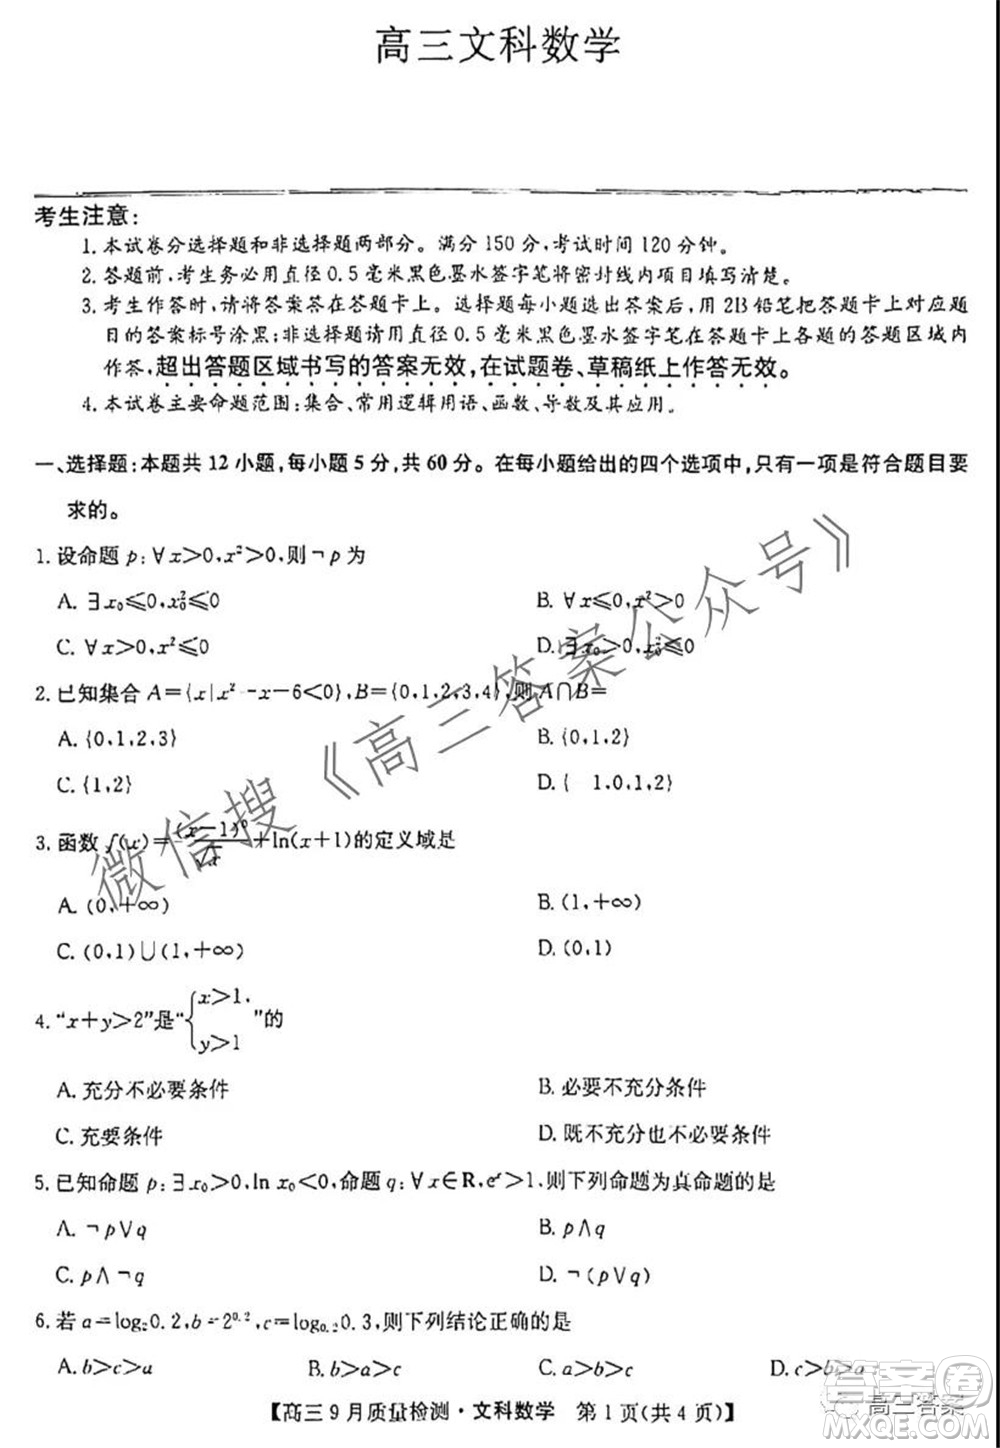 高三文科数学
考生注意:
1. 本试卷分选择题和非选择题两部分。满分 150 分,考试时间 120 分钟。
2. 答题前,考生务必用直径 0.5 毫米黑色墨水签字笔将密封线内项目填写清楚。
3. 考生作答时,请将答案答在答题卡上。选择题每小题选出答案后,用 2B 铅笔把答题卡上对应题
目的答案标号涂黑;非选择题请用直径 0.5 毫米黑色墨水签字笔在答题卡上各题的答题区域内
作答,超出答题区域书写的答案无效,在试题卷、草稿纸上作答无效。
4. 本试卷主要命题范围:集合、常用逻辑用语、函数、导数及其应用。
一、选择题:本题共 12 小题,每小题 5 分,共 60 分。在每小题给出的四个选项中,只有一项是符合题目要
求的。
1. 设命题 p:∀x>0,x²>0,则¬p 为
A. ∃x₀⩽0,x₀²⩽0
B. ∀x⩽0,x²>0
C. ∀x>0,x²⩽0
D. ∃x₀>0,x₀²⩽0
2. 已知集合 A={x|x²-x-6<0},B={0,1,2,3,4},则 A∩B=
A. {0,1,2,3}
B. {0,1,2}
C. {1,2}
D. { 1,0,1,2}
3. 函数 f(x)=(x-1)⁰/√x+ln(x+1)的定义域是
A. (0,+∞)
B. (1,+∞)
C. (0,1)∪(1,+∞)
D. (0,1)
4. “x+y>2”是“{x>1, y>1”的
A. 充分不必要条件
B. 必要不充分条件
C. 充要条件
D. 既不充分也不必要条件
5. 已知命题 p:∃x₀>0,ln x₀<0,命题 q:∀x∈R,eˣ>1,则下列命题为真命题的是
A. ¬p∨q
B. p∧q
C. p∧¬q
D. ¬(p∨q)
6. 若 a=log₂0.2,b=2^0.2,c=log₀.₂0.3,则下列结论正确的是
A. b>c>a
B. b>a>c
C. a>b>c
D. c>b>a
【高三 9 月质量检测·文科数学 第 1 页(共 4 页)】
微信搜《高三答案公众号》
高三答案
答案圈
MXQE.COM